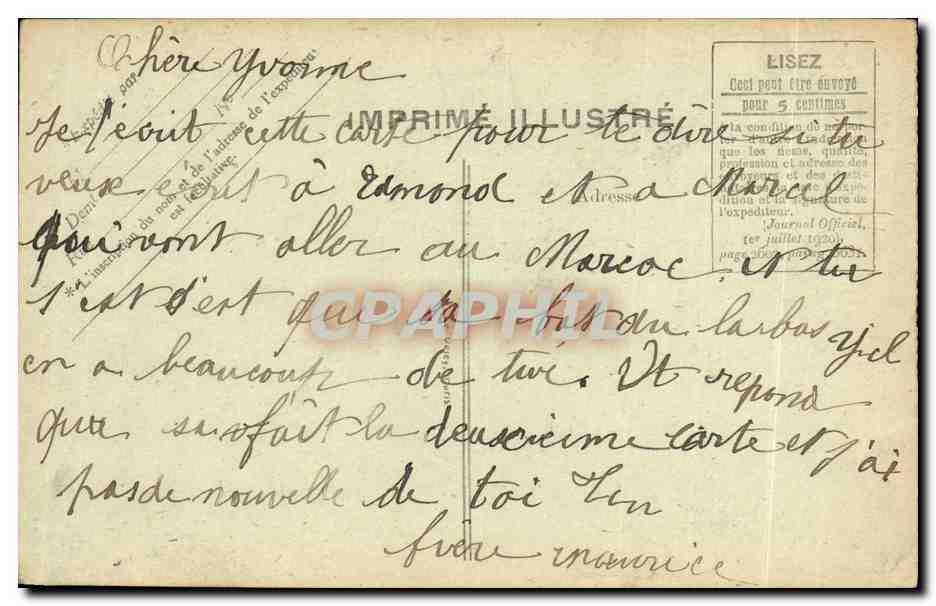 Chère Yvonne
Je t'ecrit cette carte pour te dire si tu
veux ecrit à Edmond et a Marcel
qu'i vont aller au Maroc et tu
s'est s'est que sa bas du larbas y el
en a beaucoup de tué. Vt repond
que sa fait la deuxcieime carte et j'ai
pas de nouvelle de toi Ton
frère maurice
IMPRIMÉ ILLUSTRÉ
Adresse
Expédié par
N°
* L'inscription du nom et de l'adresse de l'expéditeur
est facultative.
LISEZ
Ceci peut être envoyé
pour 5 centimes
à la condition de ne por-
que les noms, qualité,
profession et adresse des
envoyeurs et des desti-
dition et la signature de
l'expéditeur.
(Journal Officiel,
1er juillet 1920,
CPAPHIL